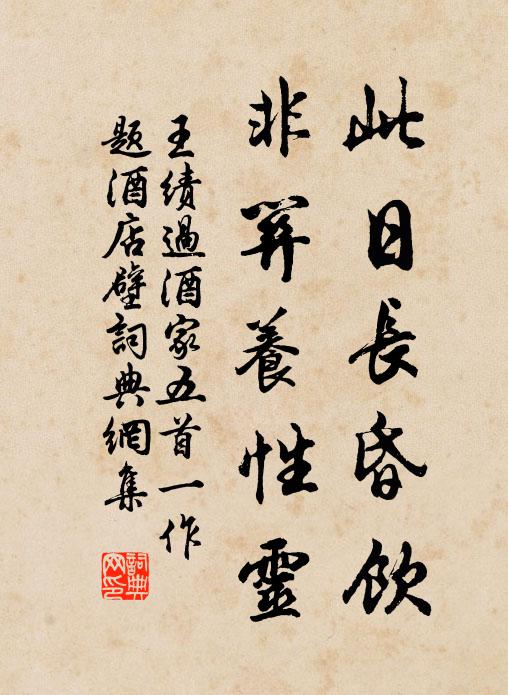 此日長昏飲
非關養性靈
王績過酒家五首一作
題酒店壁詞典網集
詞典網印